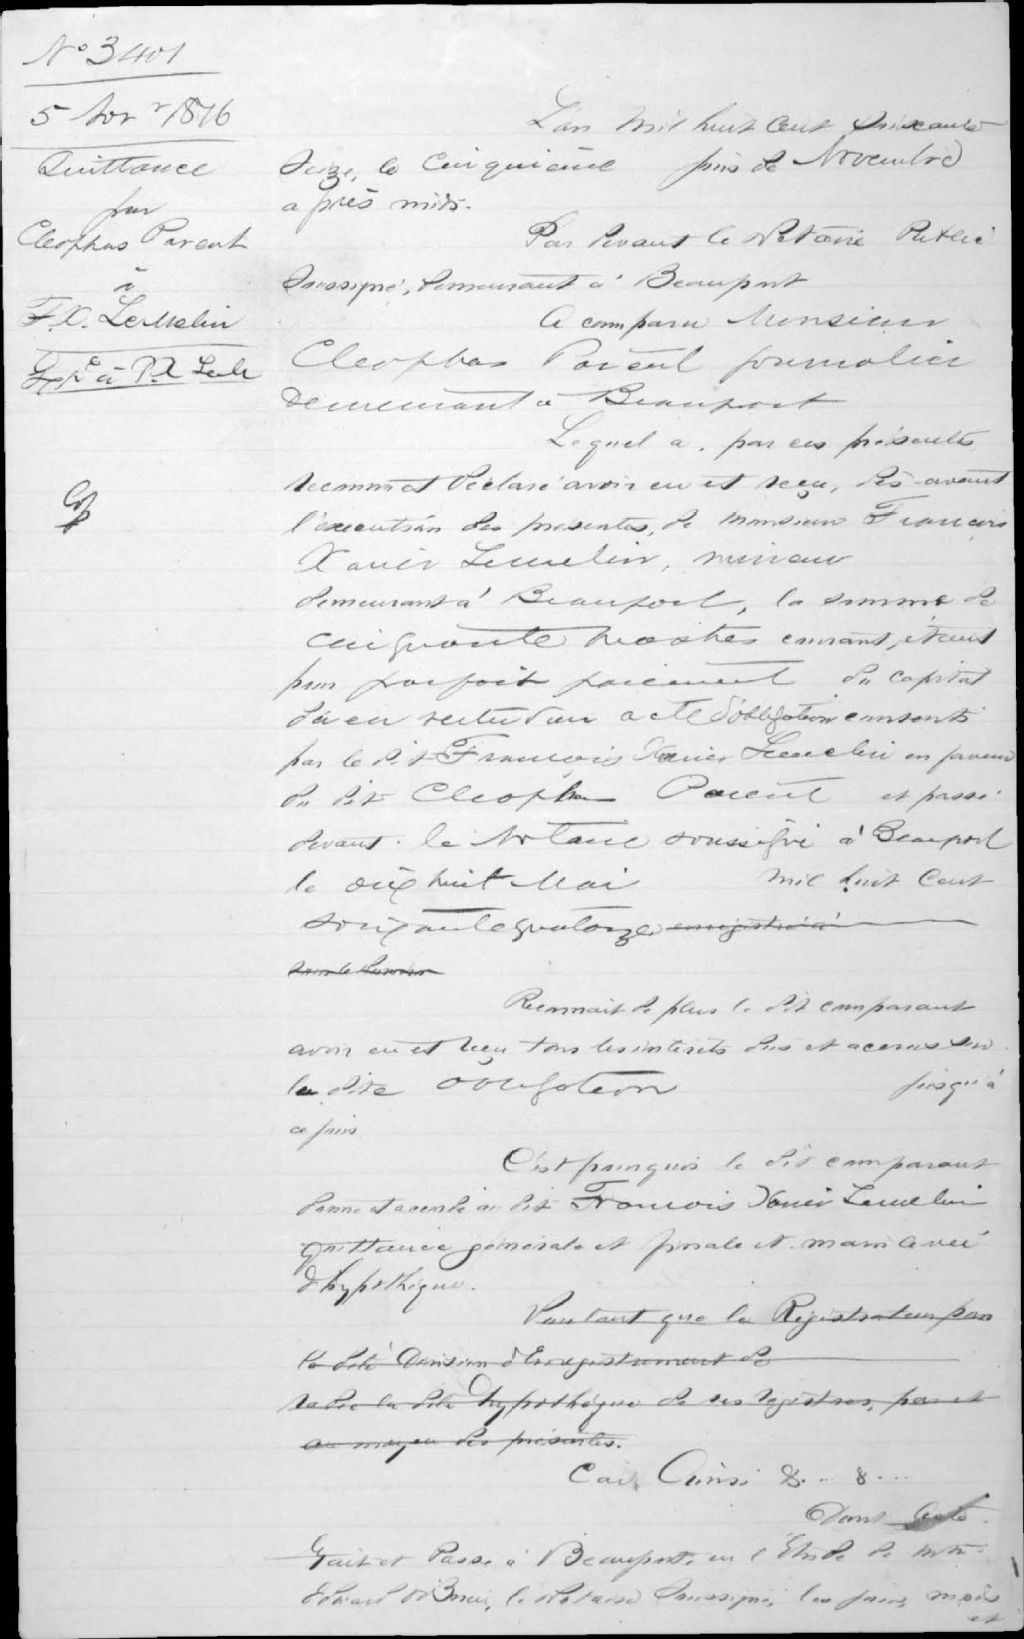 No 3401
5 Novr 1876
Quittance
par
Cleophas Parent
à
F.X. Lemelin
à
Gp
L'an Mil huit Cent Soixante
Seize, le Cinquième jour de Novembre
après midi.
Par devant le Notaire Public
Soussigné, demeurant à Beauport
A comparu Monsieur
Cleophas Parent journalier
demeurant à Beauport
Lequel a, par ces présentes
reconnu et déclaré avoir eu et reçu, dès avant
l'execution des presentes, de monsieur François
Xavier Lemelin, mineur
demeurant à Beauport, la somme de
cinquante piastres courant, étant
pour parfait paiement du capital
dû en vertu d'un acte d'obligation consenti
par le dit François Xavier Lemelin en faveur
du dit Cleophas Parent et passé
devant le Notaire soussigné à Beauport
le dix huit Mai mil huit Cent
soixante quatorze enregistrée à
sous le Numéro
Reconnait de plus le dit comparant
avoir eu et reçu tous les intérêts dus et accrus sur
la dite obligation jusqu'à
ce jour
C'est pourquoi le dit comparant
donne et accorde au dit François Xavier Lemelin
quittance générale et finale et main levée
d'hypothèque.
Voulant que le Régistrateur pour
la dite Division d'Enregistrement de
radie la dite hypothèque de ses régistres, par et
au moyen des présentes.
Car Ainsi &.. &...
Dont Acte.
Fait et Passé à Beauport, en l'Etude de mtre
le Notaire Soussigné, les jour, mois
et